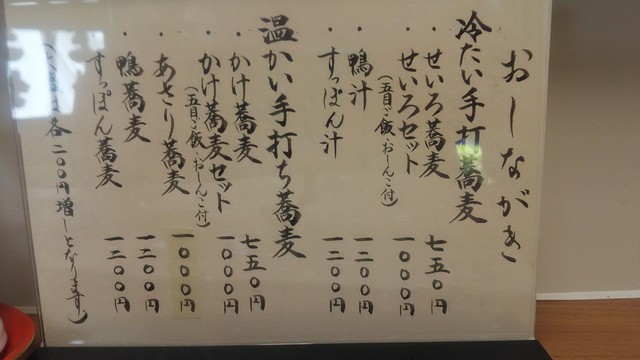 おしながき
冷たい手打蕎麦
・せいろ蕎麦 七五〇円
・せいろセット 一〇〇〇円
(五目ご飯・おしんこ付)
・鴨汁 一二〇〇円
・すっぽん汁 一二〇〇円
温かい手打ち蕎麦
・かけ蕎麦 七五〇円
・かけ蕎麦セット 一〇〇〇円
(五目ご飯・おしんこ付)
・あさり蕎麦 一〇〇〇円
・鴨蕎麦 一二〇〇円
・すっぽん蕎麦 一二〇〇円
各二〇〇円増しとなります)